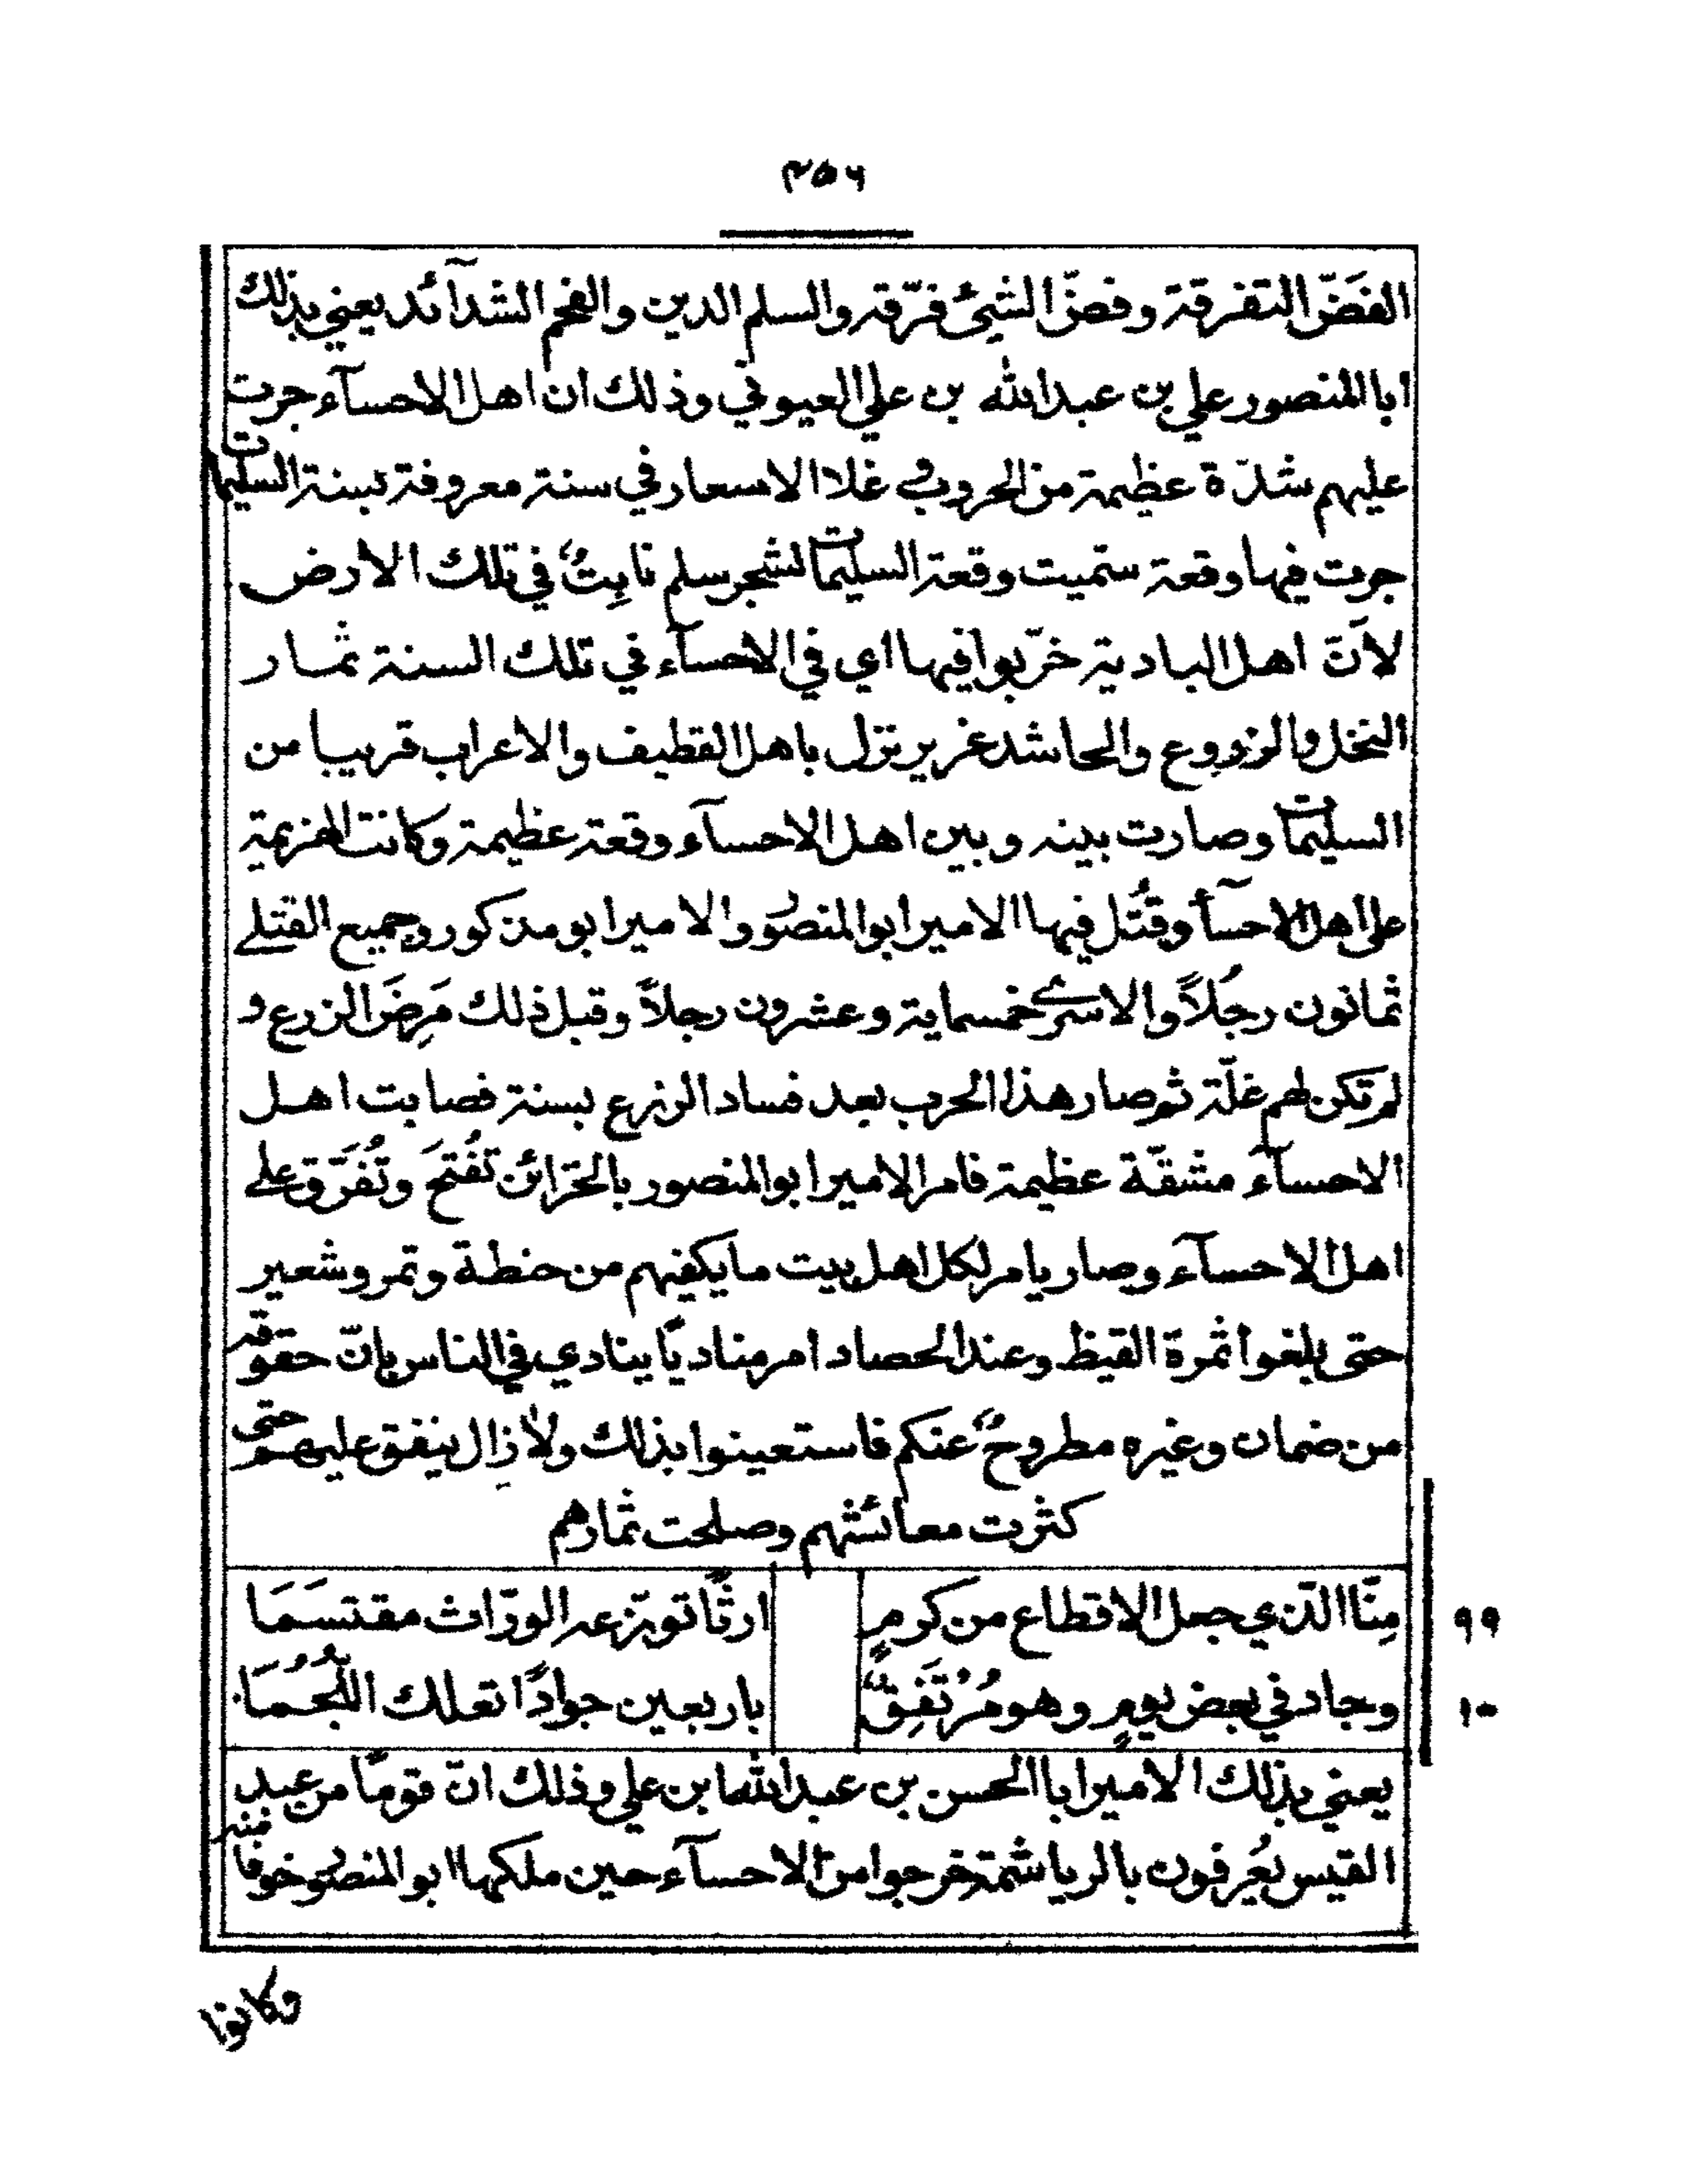 ٣٥٦
الفَضّ التفرقة وفضّ الشيئ فرّقه والسلم الدين والقحم الشدآئد يعني بذلك
ابا المنصور علي بن عبد الله بن علي العيوني وذلك ان اهل الاحسآء جرت
عليهم شدّة عظيمة من الحروب و غلاا الاسعار في سنة معروفة بسنة السليمات
جرت فيها وقعة ستميت وقعة السليمات لشجر سلم نابِتٌ في تلك الارض
لأنّ اهل البادية خرّبوا فيها اي في الاحسآء في تلك السنة ثمار
النخل والزروع والحاشد غرير نزل باهل القطيف والاعراب قريبا من
السليمات وصارت بينه وبين اهل الاحسآء وقعة عظيمة وكانت الهزيمة
على اهل الاحسآء وقُتل فيها الامير ابو المنصور والامير ابو مذكور وجميع القتلى
ثمانون رجُلاً والاسرى خمسماية وعشرون رجلاً وقبل ذلك مَرِضَ الزرع و
لم تكن لهم غلّة ثم صار هذا الحرب بعد فساد الزرع بسنة فصابت اهل
الاحسآء مشقّة عظيمة فامر الامير ابو المنصور بالخزائن تُفتحَ وتُفَرّق على
اهل الاحسآء وصار يامر لكل اهل بيت ما يكفيهم من حنطة وتمر وشعير
حتى بلغوا ثمرة القيظ وعند الحصاد امر مناديًا ينادي في الناس بانّ حقوقه
من ضمان وغيره مطروحٌ عنكم فاستعينوا بذلك ولا زال ينفق عليهم حتى
كثرت معائشهم وصلحت ثمارهم
٩٩ مِنّا الذي جعل الاقطاع من كرمٍ ارثًا توزّعه الورّاث مقتسَمَا
١٠٠ وجاد في بعض يومٍ وهو مُرْتَفِقٌ باربعين جوادًا تعلك اللُّجُمَا
يعني بذلك الامير ابا الحسن بن عبد الله ابن علي وذلك انّ قومًا من عبد
القيس يُعرفون بالرياشمة خرجوا من الاحسآء حين ملكها ابو المنصور خوفا منه
وكانوا